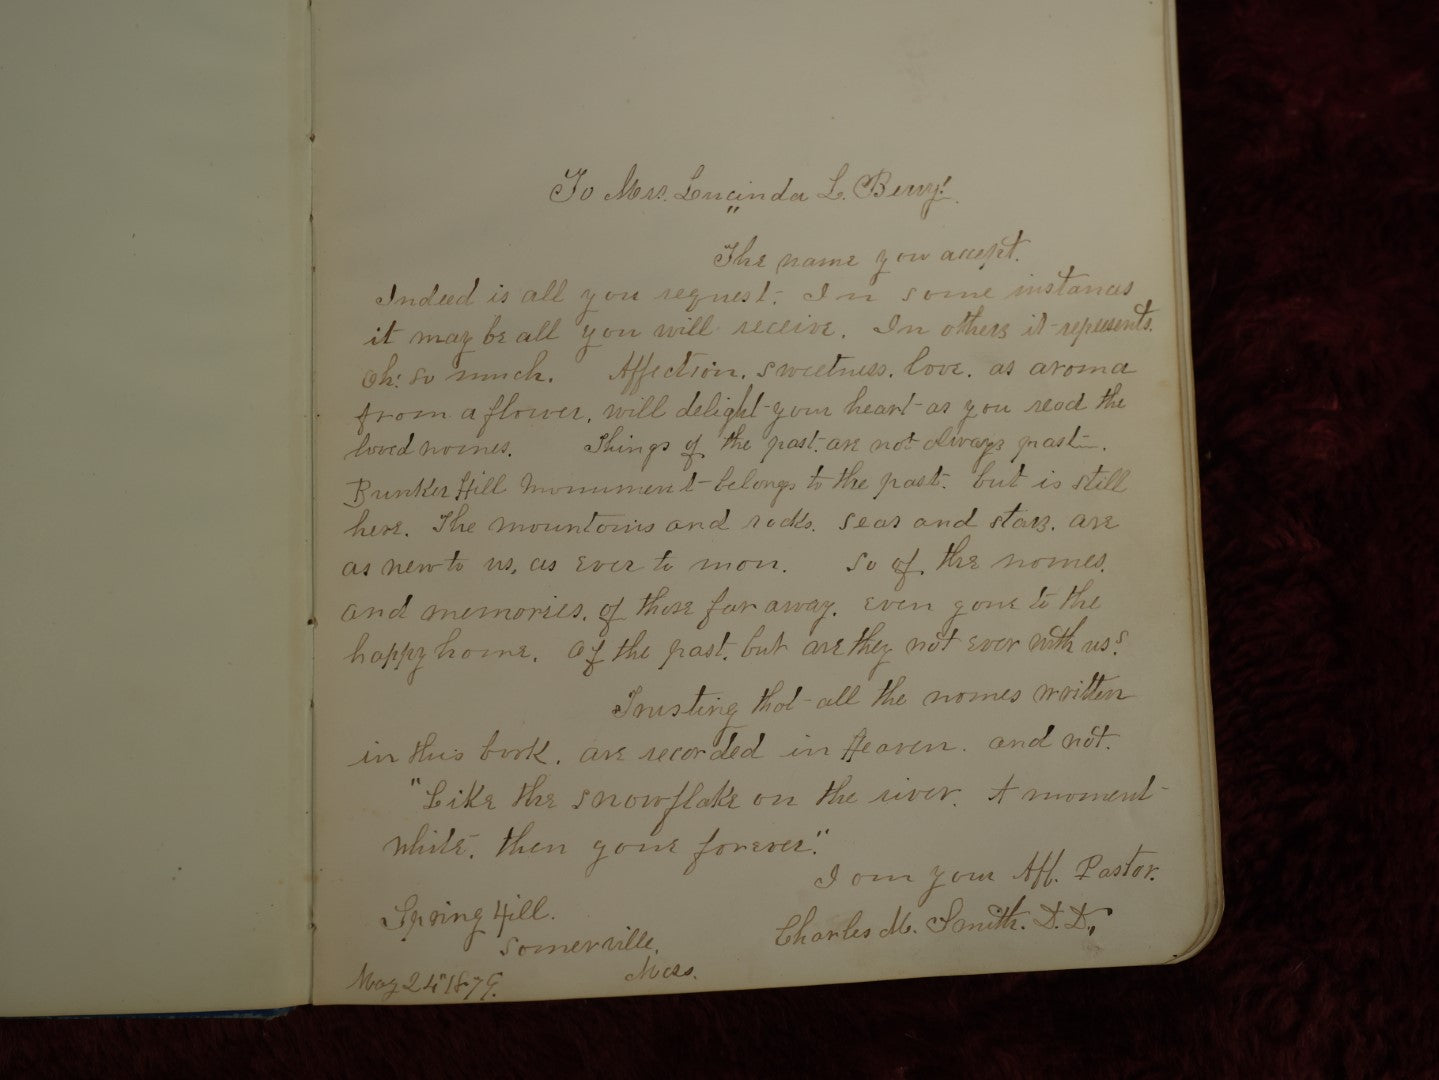 To Mrs. Lucinda L. Berry!
"
The name you accept.
Indeed is all you request. In some instances
it may be all you will receive. In others it represents.
Oh! so much. Affection. sweetness. love. as aroma
from a flower, will delight your heart as you read the
loved names. Things of the past. are not always past.
Bunker Hill Monument belongs to the past. but is still
here. The mountains and rocks. seas and stars. are
as new to us, as ever to man. So of the names.
and memories. of those far away. even gone to the
happy home. Of the past. but are they not ever with us?
Trusting that all the names written
in this book. are recorded in Heaven. and not.
"Like the snowflake on the river. A moment
white. then gone forever."
I am your Aff. Pastor.
Charles M. Smith. D.D.
Spring Hill.
Somerville,
Mass.
May 24" 1879.